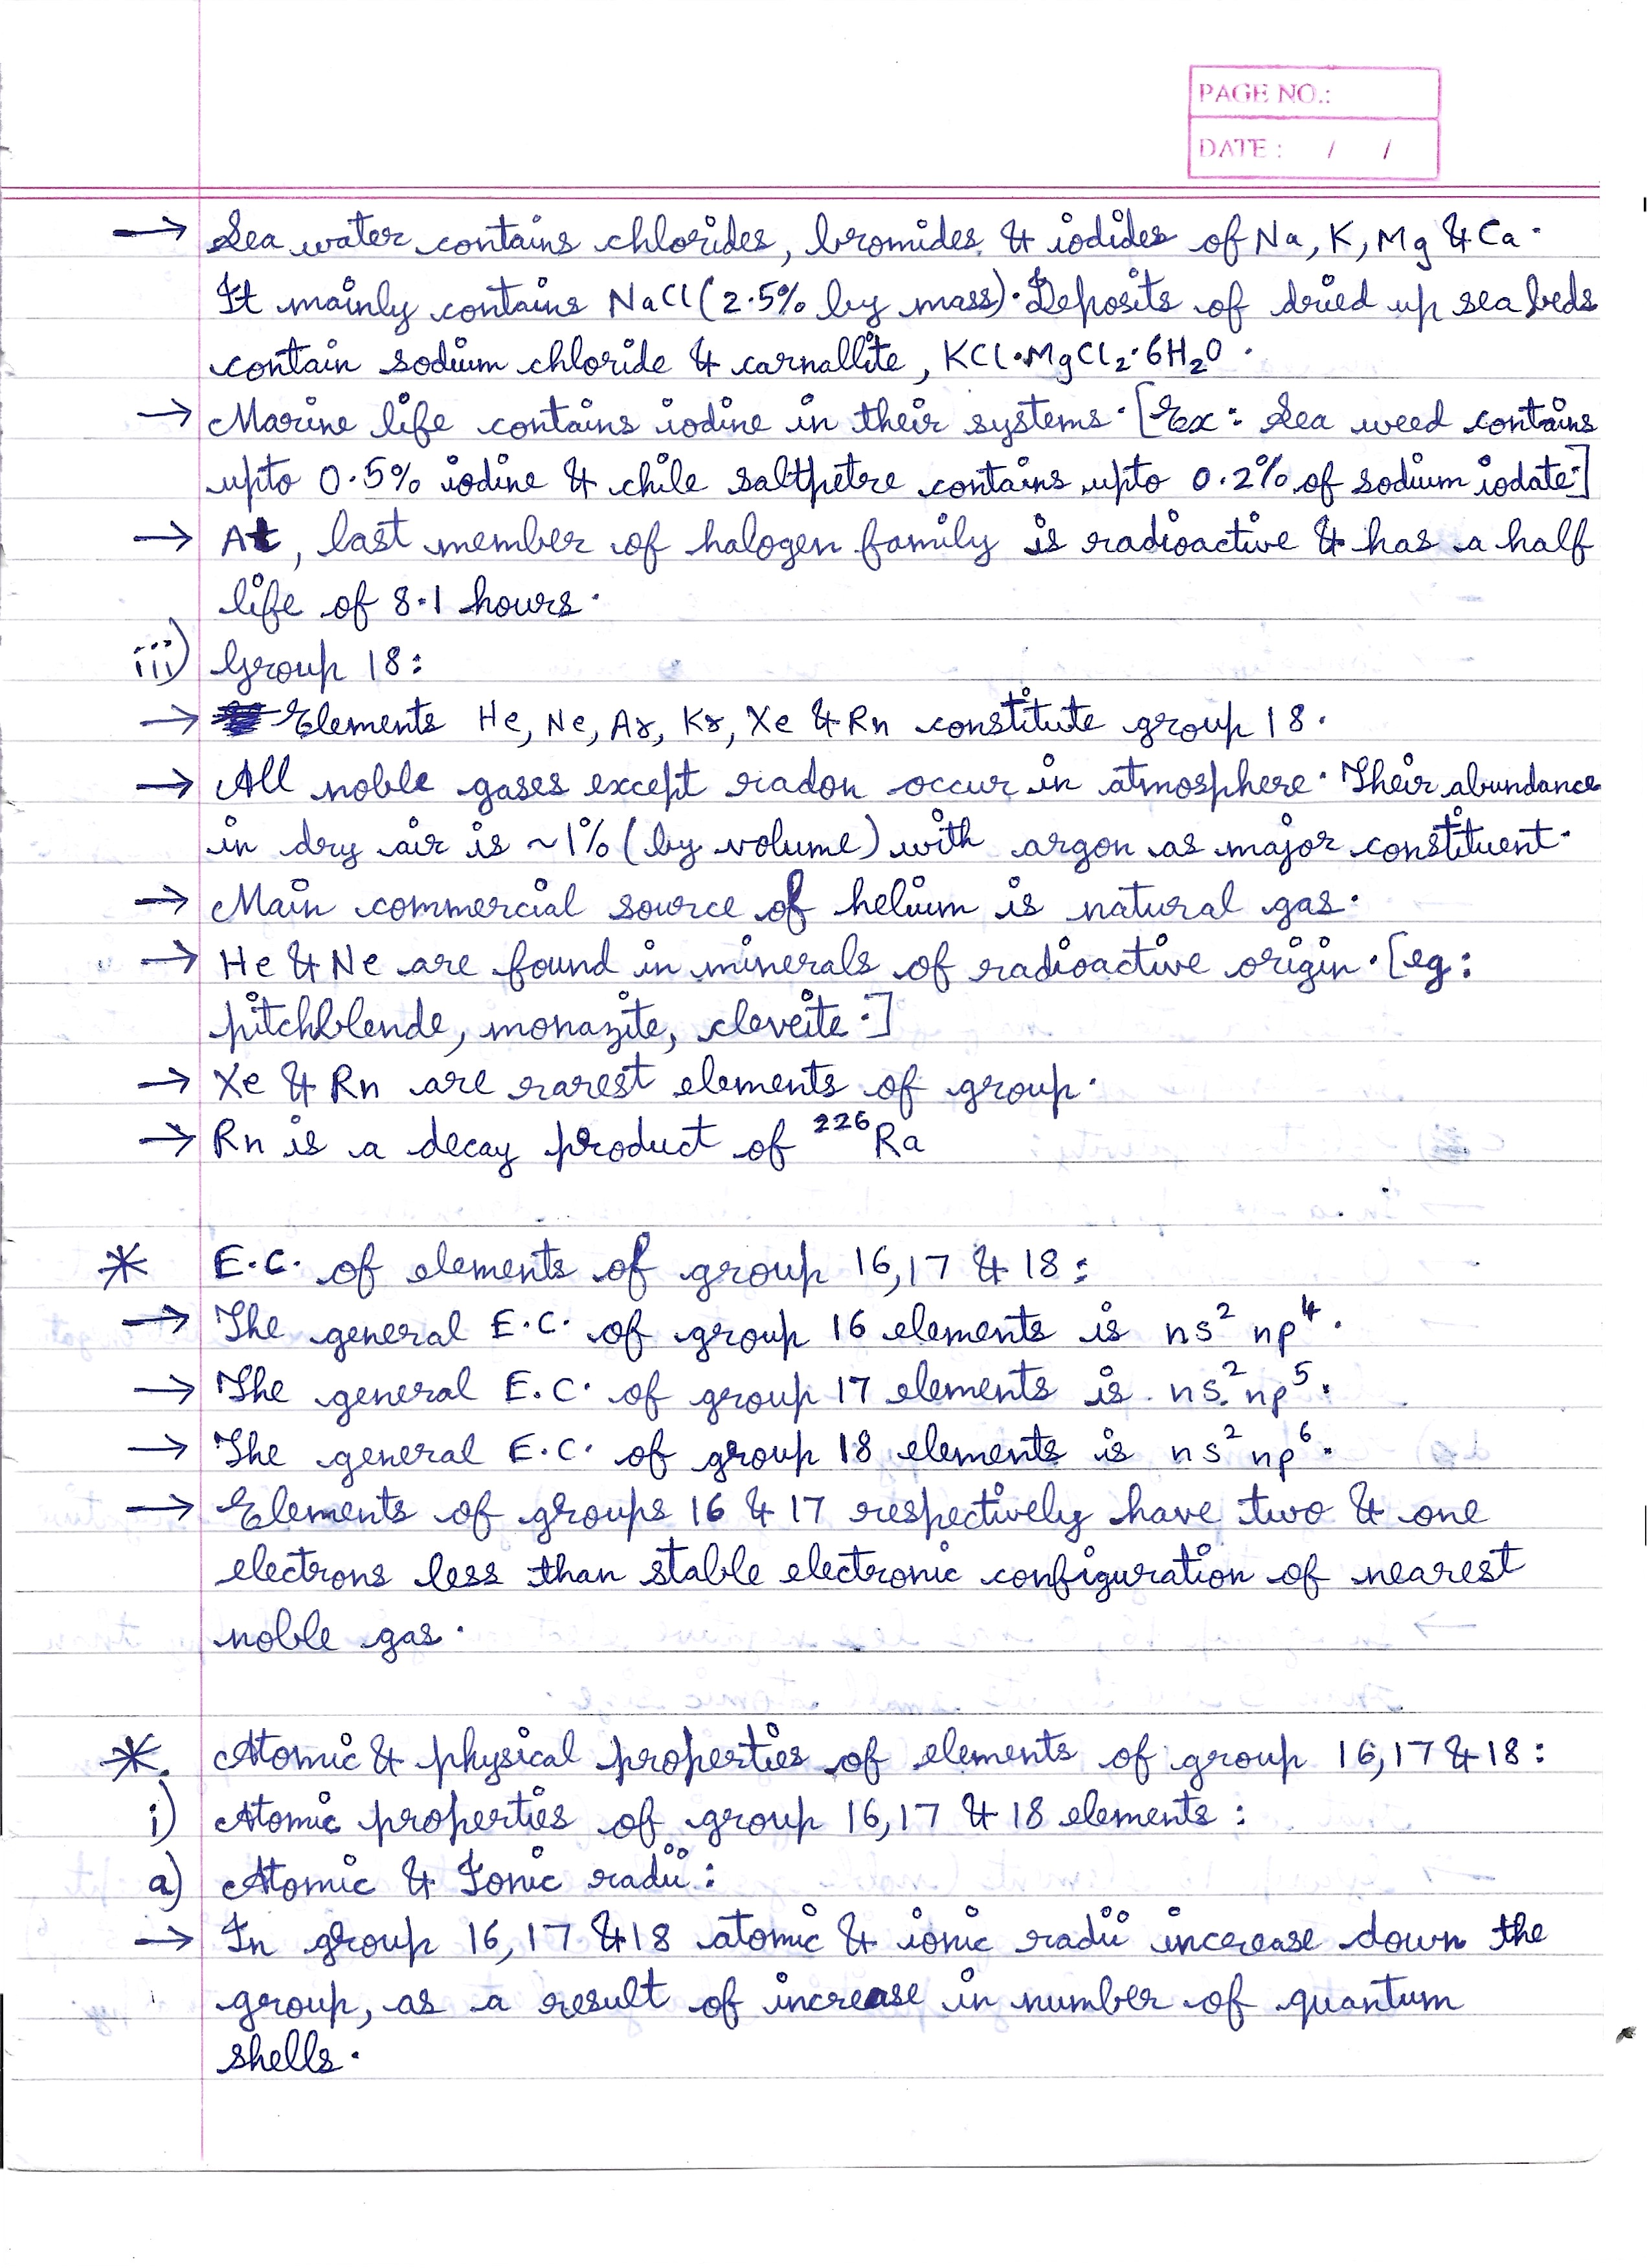 PAGE NO.:
DATE : / /
→ Sea water contains chlorides, bromides & iodides of Na, K, Mg & Ca.
It mainly contains NaCl (2.5% by mass). Deposits of dried up sea beds
contain sodium chloride & carnallite, KCl·MgCl₂·6H₂O.
→ Marine life contains iodine in their systems. [Ex: Sea weed contains
upto 0.5% iodine & chile saltpetre contains upto 0.2% of sodium iodate.]
→ At, last member of halogen family is radioactive & has a half
life of 8.1 hours.
iii) Group 18:
→ Elements He, Ne, Ar, Kr, Xe & Rn constitute group 18.
→ All noble gases except radon occur in atmosphere. Their abundance
in dry air is ~1% (by volume) with argon as major constituent.
→ Main commercial source of helium is natural gas.
→ He & Ne are found in minerals of radioactive origin. [eg:
pitchblende, monazite, cleveite.]
→ Xe & Rn are rarest elements of group.
→ Rn is a decay product of ²²⁶Ra
* E.C. of elements of group 16,17 & 18:
→ The general E.C. of group 16 elements is ns² np⁴.
→ The general E.C. of group 17 elements is ns² np⁵.
→ The general E.C. of group 18 elements is ns² np⁶.
→ Elements of groups 16 & 17 respectively have two & one
electrons less than stable electronic configuration of nearest
noble gas.
* Atomic & physical properties of elements of group 16,17 & 18:
i) Atomic properties of group 16,17 & 18 elements:
a) Atomic & Ionic radii:
→ In group 16,17 & 18 atomic & ionic radii increase down the
group, as a result of increase in number of quantum
shells.